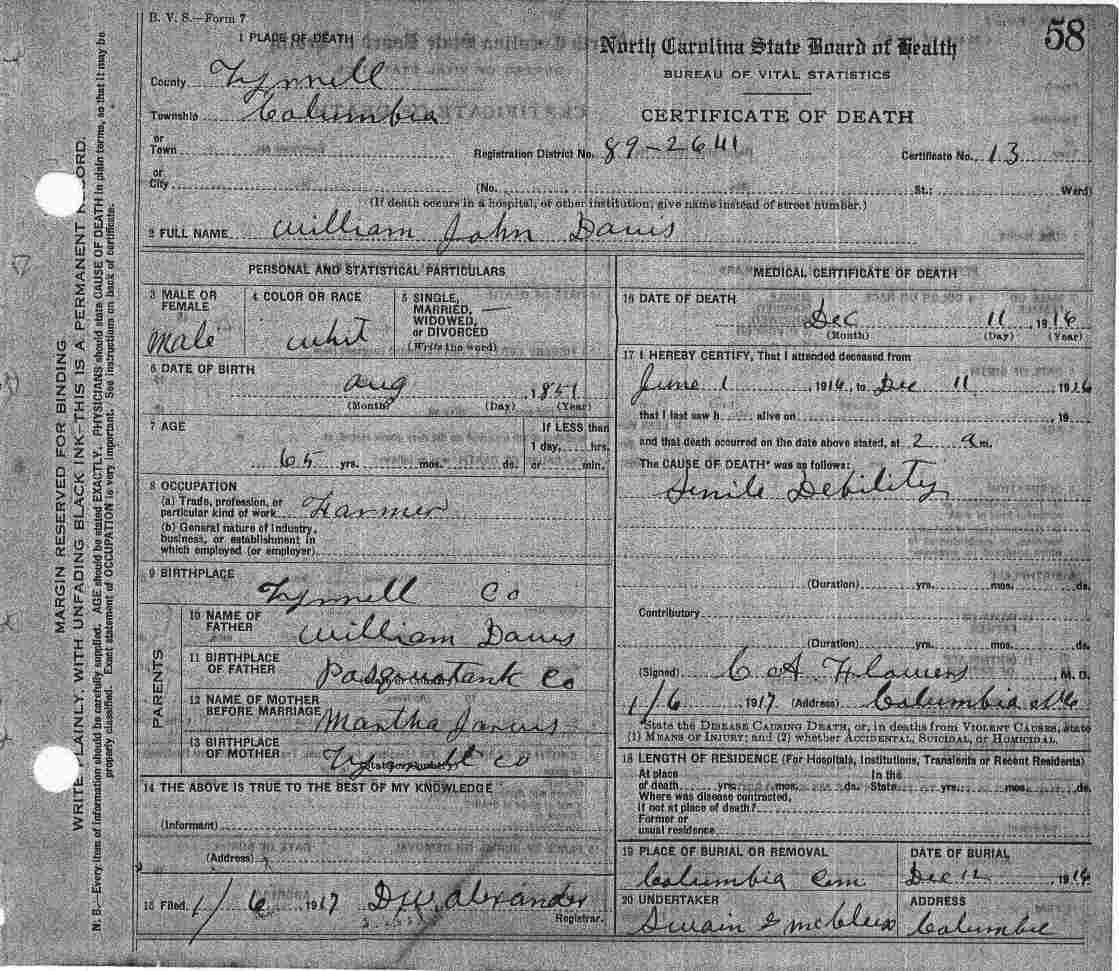 B. V. S.—Form 7
58
1 PLACE OF DEATH
North Carolina State Board of Health
BUREAU OF VITAL STATISTICS
CERTIFICATE OF DEATH
County Tyrrell
Township Columbia
or
Town
Registration District No. 89-2641
Certificate No. 13
or
City
(No.
St.;
Ward)
(If death occurs in a hospital, or other institution, give name instead of street number.)
2 FULL NAME William John Davis
PERSONAL AND STATISTICAL PARTICULARS
3 MALE OR FEMALE
Male
4 COLOR OR RACE
Whit
5 SINGLE, MARRIED, WIDOWED, or DIVORCED
(Write the word)
6 DATE OF BIRTH
Aug , 1851
(Month) (Day) (Year)
7 AGE
65 yrs. mos. ds.
If LESS than
1 day, hrs.
or min.
8 OCCUPATION
(a) Trade, profession, or
particular kind of work Farmer
(b) General nature of industry,
business, or establishment in
which employed (or employer)
9 BIRTHPLACE
Tyrrell Co
PARENTS
10 NAME OF FATHER
William Davis
11 BIRTHPLACE OF FATHER
Pasquotank Co
12 NAME OF MOTHER BEFORE MARRIAGE
Martha Jarvis
13 BIRTHPLACE OF MOTHER
Co
14 THE ABOVE IS TRUE TO THE BEST OF MY KNOWLEDGE
(Informant)
(Address)
15 Filed 1/6 1917 Alexander
Registrar.
MEDICAL CERTIFICATE OF DEATH
16 DATE OF DEATH
Dec 11, 1916
(Month) (Day) (Year)
17 I HEREBY CERTIFY, That I attended deceased from
June 1, 1916, to Dec 11 1916
that I last saw h alive on , 19
and that death occurred on the date above stated, at 2 a m.
The CAUSE OF DEATH* was as follows:
Senile Debility
(Duration) yrs. mos. ds.
Contributory
(Duration) yrs. mos. ds.
(Signed) C A Flowers M. D.
1/6 1917 (Address) Columbia NC
*State the DISEASE CAUSING DEATH, or, in deaths from VIOLENT CAUSES, state
(1) MEANS OF INJURY; and (2) whether ACCIDENTAL, SUICIDAL, or HOMICIDAL.
18 LENGTH OF RESIDENCE (For Hospitals, Institutions, Transients or Recent Residents)
At place In the
of death yrs. mos. ds. State yrs. mos. ds.
Where was disease contracted,
if not at place of death?
Former or
usual residence
19 PLACE OF BURIAL OR REMOVAL
Columbia Cem
DATE OF BURIAL
Dec 12 1916
20 UNDERTAKER
Swain &
ADDRESS
Columbia
MARGIN RESERVED FOR BINDING
WRITE PLAINLY, WITH UNFADING BLACK INK—THIS IS A PERMANENT RECORD.
N. B.—Every item of information should be carefully supplied. AGE should be stated EXACTLY. PHYSICIANS should state CAUSE OF DEATH in plain terms, so that it may be
properly classified. Exact statement of OCCUPATION is very important. See instructions on back of certificate.